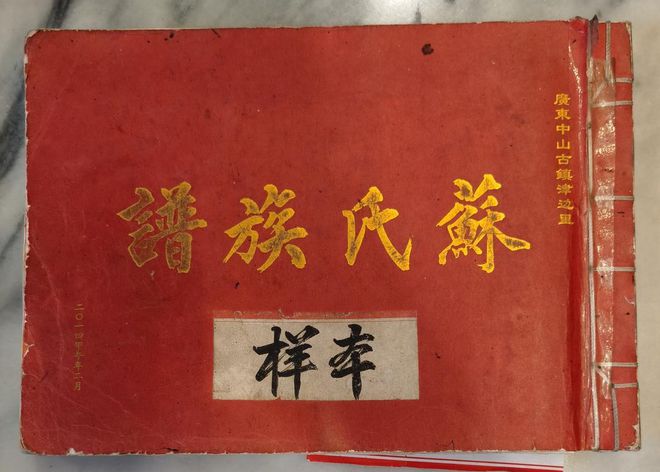 廣東中山古鎮津边里
蘇氏族譜
样本
二〇一四甲午年二月